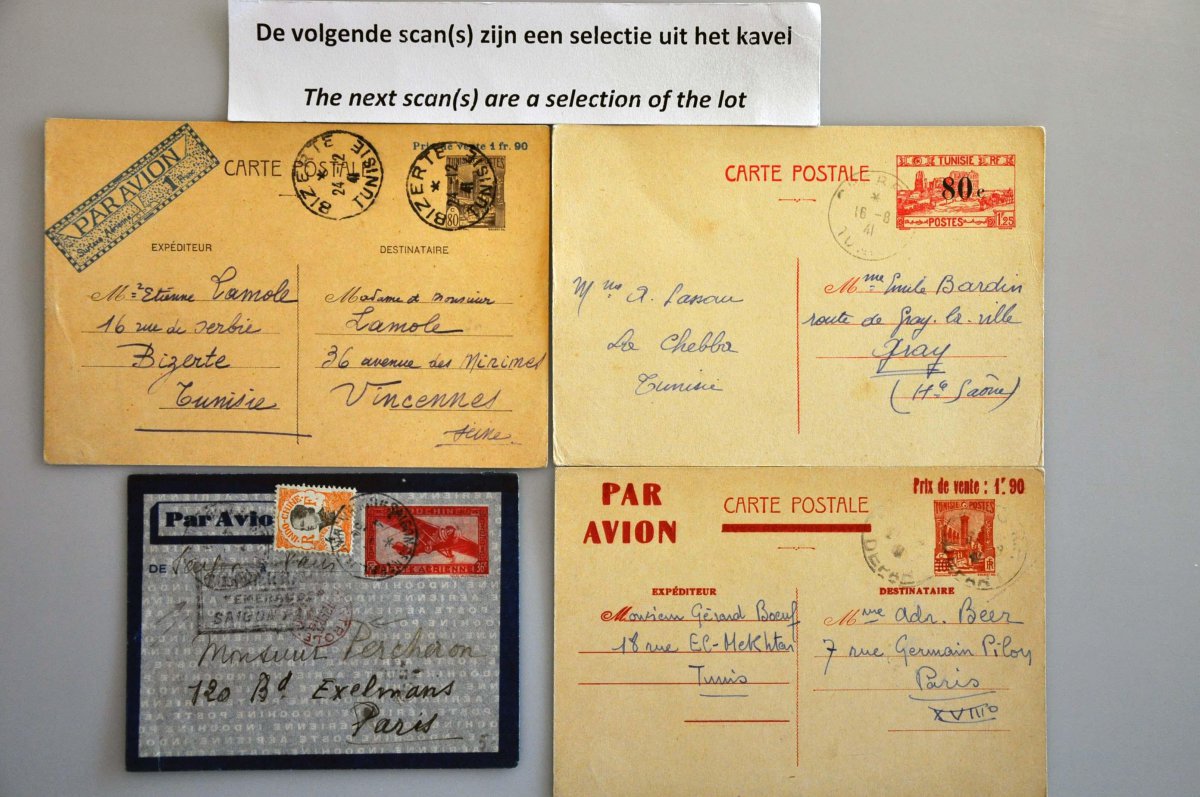 De volgende scan(s) zijn een selectie uit het kavel
The next scan(s) are a selection of the lot
PAR AVION
1 fr.
CARTE POSTALE
Prix de vente 1 fr. 90
BIZERTE
24 -12
41
TUNISIE
BIZERTE
24 -12
41
TUNISIE
TUNISIE POSTES
80
EXPÉDITEUR
DESTINATAIRE
Mr Etienne Lamole
16 rue de Serbie
Bizerte
Tunisie
Madame et Monsieur
Lamole
36 avenue des Minimes
Vincennes
Seine
CARTE POSTALE
TUNISIE RF
80 c
POSTES
1,25
16 -8
41
La Chebba
Tunisie
Mme Emile Bardin
route de Gray-la-ville
Gray
(Hte Saône)
Par Avion
INDO-CHINE
RF
INDOCHINE
POSTE AERIENNE
36c
DE
SAIGON
Monsieur Percheron
120 Bd Exelmans
Paris
5
PAR
AVION
CARTE POSTALE
Prix de vente : 1f 90
TUNISIE POSTES
EXPÉDITEUR
DESTINATAIRE
Monsieur Gérard Boeuf
18 rue El-Mekhtar
Tunis
Mme Adr. Beer
7 rue Germain Pilon
Paris
XVIIIe